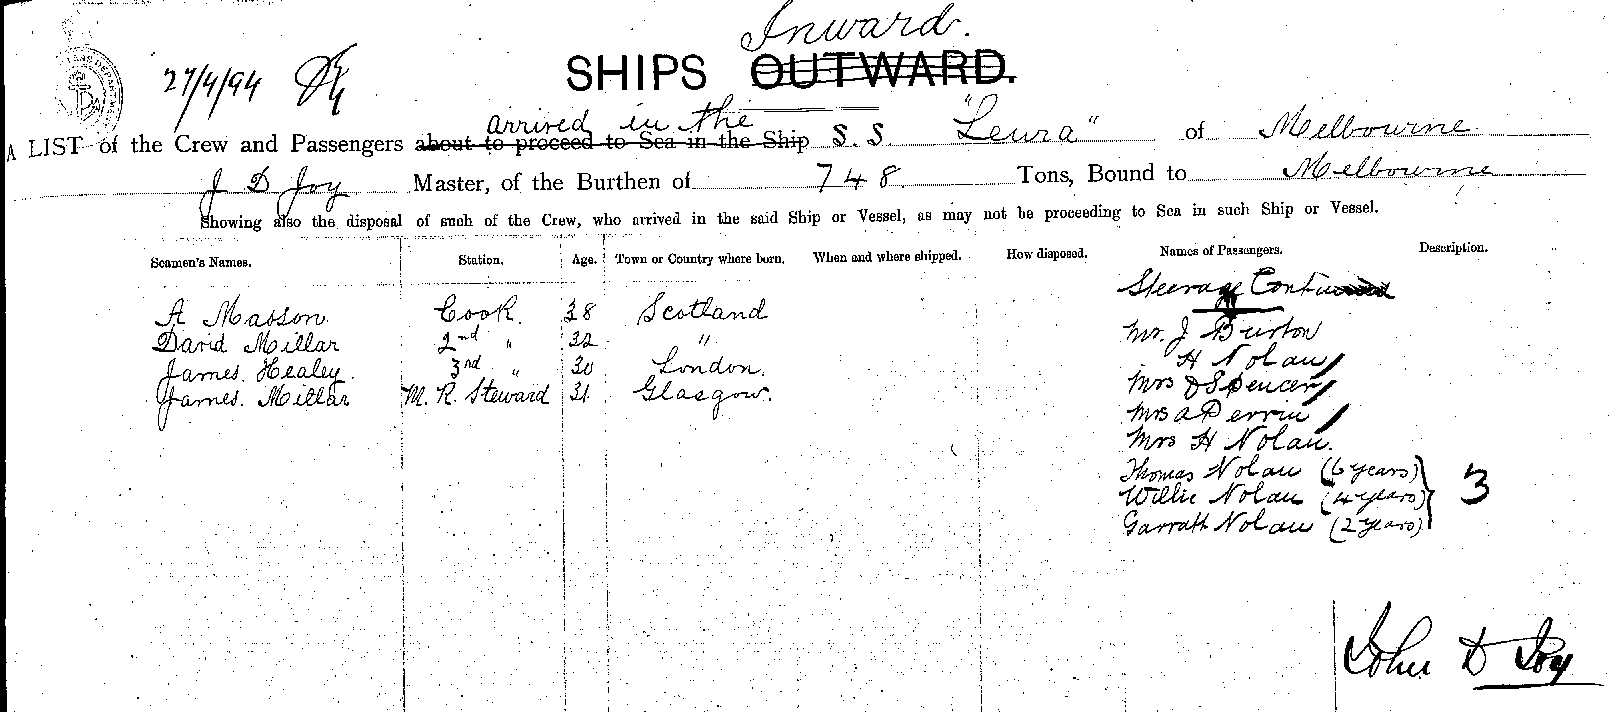 Inward.
27/4/94
SHIPS OUTWARD.
arrived in the
A LIST of the Crew and Passengers about to proceed to Sea in the Ship S. S. "Leura" of Melbourne
J D Joy Master, of the Burthen of 748 Tons, Bound to Melbourne
Showing also the disposal of such of the Crew, who arrived in the said Ship or Vessel, as may not be proceeding to Sea in such Ship or Vessel.
Seamen's Names. Station. Age. Town or Country where born. When and where shipped. How disposed. Names of Passengers. Description.
Steerage Continued
A Masson Cook. 38 Scotland
David Millar 2nd " 32 "
James. Healey. 3rd " 30 London.
James. Millar M. R. Steward 31. Glasgow.
Mr. J Burton
H Nolan
Mrs Spencer
Mrs A Perrin
Mrs H Nolan.
Thomas Nolan (6 years)
Willie Nolan (4 years) 3
Garrath Nolan (2 years)
John D Joy